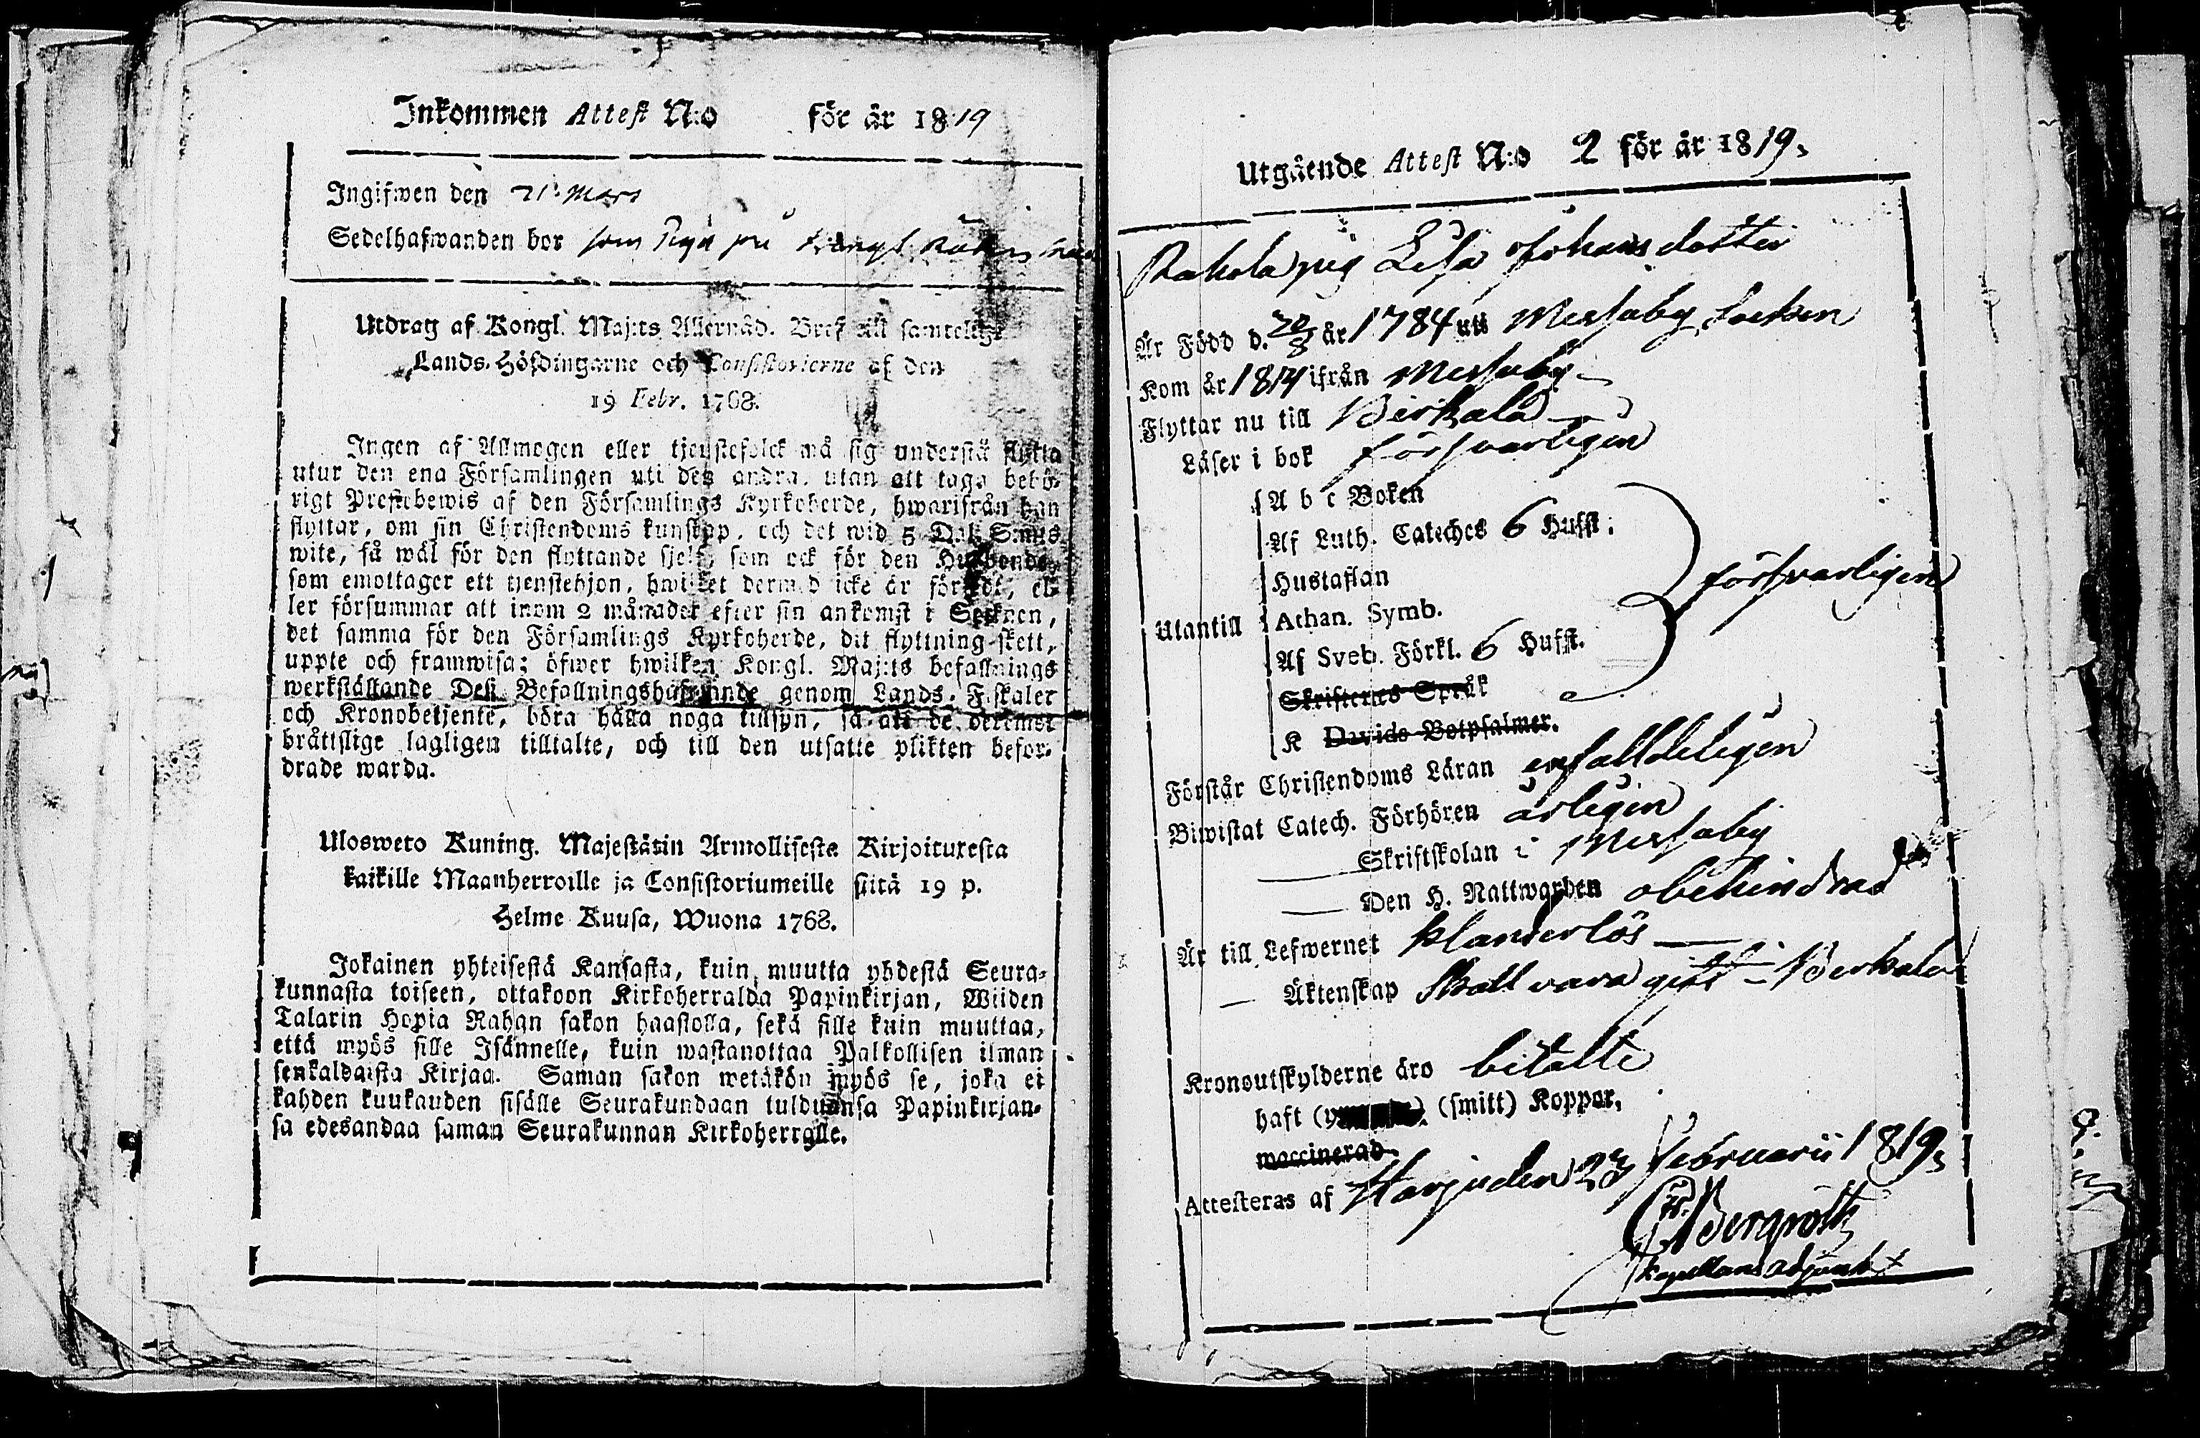 Inkommen Attest N:o för år 1819
Ingifwen den 21 Mars
Sedelhafwanden bor som Piga på
Utdrag af Kongl. Maj:ts Allernåd. Bref till samtelige
Lands-Höfdingarne och Consistorierne af den
19 Febr. 1768.
Ingen af Allmogen eller tjenstefolck må sig understå flytta
utur den ena Församlingen uti den andra, utan att taga behö-
rigt Prestebewis af den Församlings Kyrkoherde, hwarifrån han
flyttar, om sin Christendoms kunskap, och det wid 5 Dal. S:mts
wite, så wäl för den flyttande sjelf, som ock för den Husbonde,
som emottager ett tjenstehjon, hwilket dermed icke är försedt, el-
ler försummar att inom 2 månader efter sin ankomst i Socknen,
det samma för den Församlings Kyrkoherde, dit flyttning skett,
uppte och framwisa; öfwer hwilken Kongl. Maj:ts befallnings
werkställande Deß Befallningshafwande genom Lands-Fiskaler
och Kronobetjente, böra hålla noga tillsyn, så att de deremot
bråttslige lagligen tilltalte, och till den utsatte plikten befor-
drade warda.
Ulosweto Kuning. Majestätin Armollisesta Kirjoituxesta
kaikille Maanherroille ja Consistoriumeille siitä 19 p.
Helme Kuusa, Wuona 1768.
Jokainen yhteisestä Kansasta, kuin muutta yhdestä Seura-
kunnasta toiseen, ottakoon Kirkoherralda Papinkirjan, Wiiden
Talarin Hopia Rahan sakon haastolla, sekä sille kuin muuttaa,
että myös sille Isännelle, kuin wastanottaa Palkollisen ilman
senkaldaista Kirjaa. Saman sakon wetäkön myös se, joka ei
kahden kuukauden sisälle Seurakundaan tulduansa Papinkirjan-
sa edesandaa saman Seurakunnan Kirkoherralle.
Utgående Attest N:o 2 för år 1819.
Rahola pig Lisa Johansdotter
Är Född d. 20/8 år 1784 uti Messuby Socken
Kom år 1814 ifrån Messuby
Flyttar nu till Birkala
Läser i bok försvarligen
A b c Boken
Af Luth. Cateches 6 Hufst:
Hustaflan
försvarligen
Utantill Athan. Symb.
Af Sveb. Förkl. 6 Hufst.
Skriftenes Språk
K Davids Botpsalmer.
Förstår Christendoms Läran enfalldeligen
Biwistat Catech. Förhören årligen
Skriftskolan i Messuby
Den H. Nattwarden obehindrad
Är till Lefwernet klanderlös
Äktenskap Skall vara gift i Birkala
Kronoutskylderne äro betalte
haft (smitt) Koppor,
waccinerad.
Attesteras af Harju den 23 Februarii 1819.
Bergroth
Kapellans adjunkt